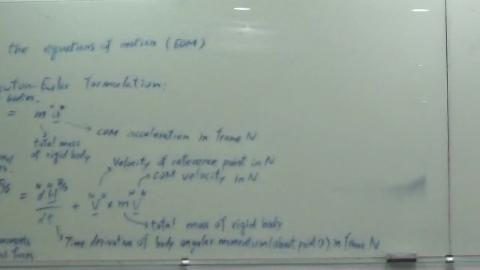 the equations of motion (EOM)
wton-Euler Formulation:
bodies.
= m a
COM acceleration in frame N
total mass
of rigid body
Velocity of reference point in N
COM velocity in N
= + v × m v
dt
total mass of rigid body
Time derivative of body angular momentum (about point O) in frame N